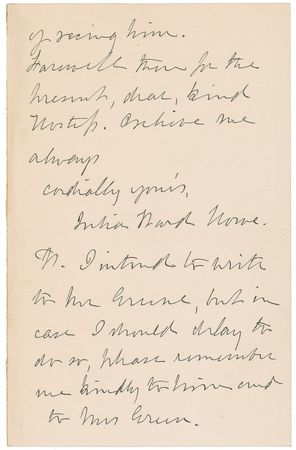 of seeing him.
Farewell then for the
present, dear, kind
Hostess. Believe me
always
cordially yours,
Julia Ward Howe.
Ps. I intend to write
to Mr Greene, but in
case I should delay to
do so, please remember
me kindly to him and
to Mrs Green.